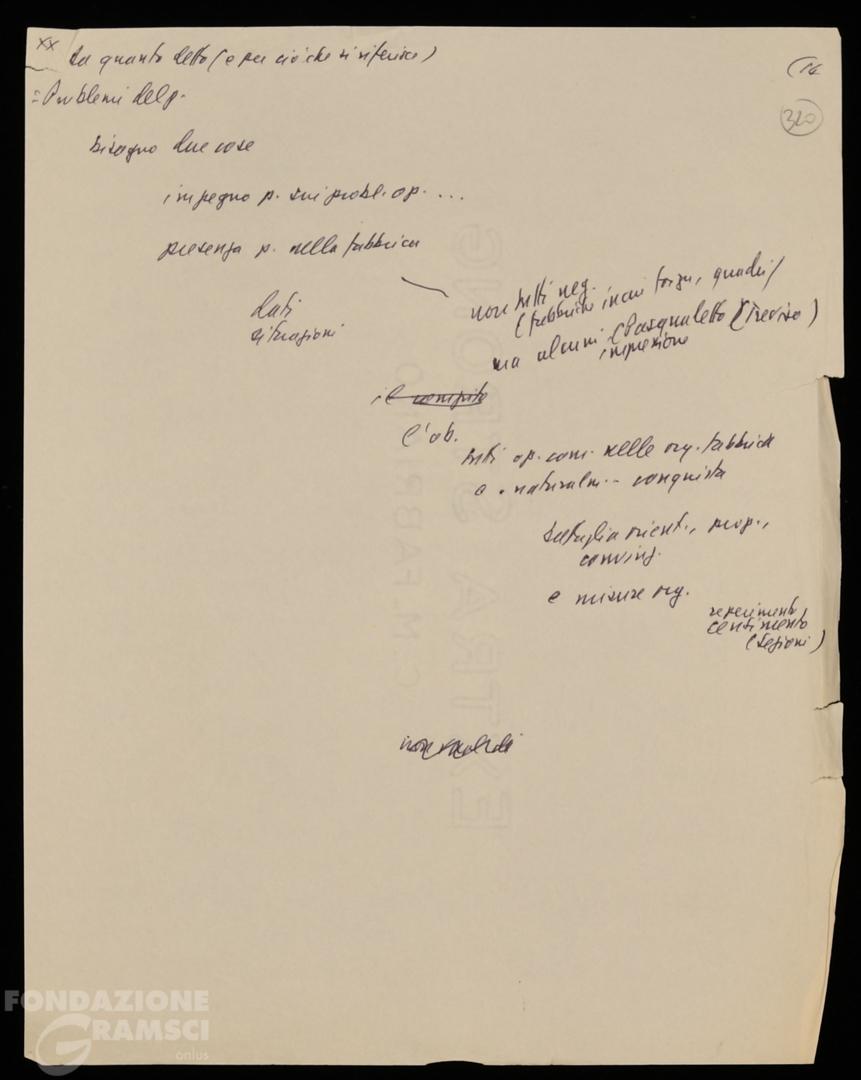 xx da quanto detto (e per ciò che si riferisce)
(14
= Problemi del p.
320
bisogno due cose
impegno p. sui probl. op. ...
presenza p. nella fabbrica
dati
situazioni
non tutti neg.
(fabbriche in cui forza, quadri)
ma alcuni (Pasqualetto (Treviso)
impressione
il compito
l'ob.
tutti op. com. nelle org. fabbrica
e . naturalm. - conquista
battaglia orient., prop.,
conving.
e misure org.
reperimento,
censimento
(sezioni)
FONDAZIONE
GRAMSCI
onlus